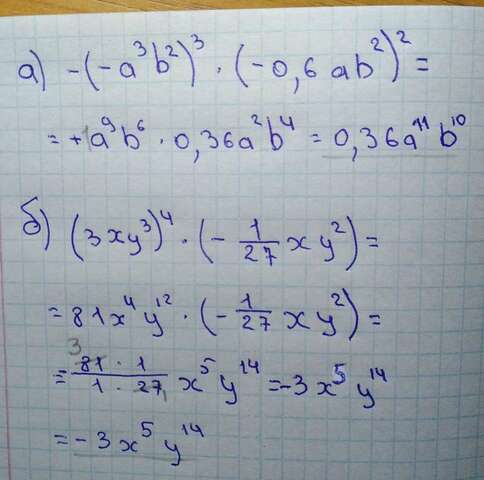 а) -(-a³b²)³ · (-0,6ab²)² =
= +1a⁹b⁶ · 0,36a²b⁴ = 0,36a¹¹b¹⁰
б) (3xy³)⁴ · (- 1/27 xy²) =
= 81x⁴y¹² · (- 1/27 xy²) =
3
= 81 · 1 / 1 · 27₁ x⁵y¹⁴ = -3x⁵y¹⁴
= -3x⁵y¹⁴